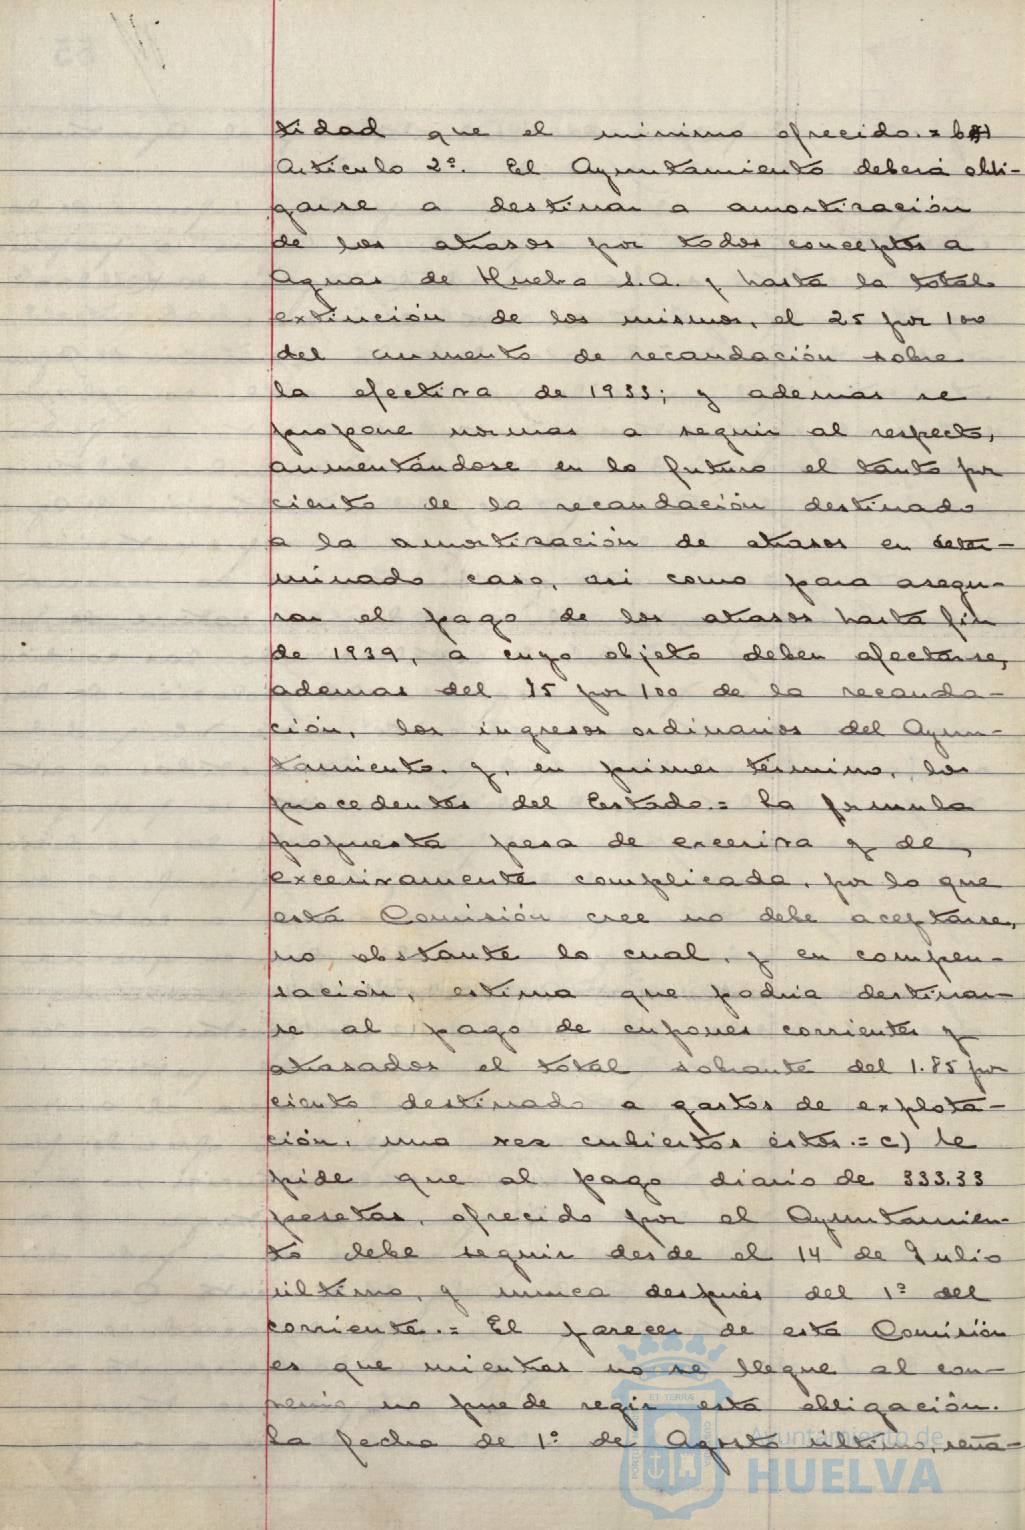 tidad que el minimo ofrecido.= b)
Articulo 2º. El Ayuntamiento deberá obli-
garse a destinar a amortización
de los atrasos por todos conceptos a
Aguas de Huelva S.A. y hasta la total
extinción de los mismos, el 25 por 100
del aumento de recaudación sobre
la efectiva de 1933; y ademas se
propone normas a seguir al respecto,
aumentándose en lo futuro el tanto por
ciento de la recaudación destinado
a la amortización de atrasos en deter-
minado caso, asi como para asegu-
rar el pago de los atrasos hasta fin
de 1939, a cuyo objeto deben afectarse,
ademas del 15 por 100 de la recauda-
ción, los ingresos ordinarios del Ayun-
tamiento y, en primer término, los
procedentes del Estado.= La formula
propuesta pesa de excesiva y de
excesivamente complicada, por lo que
esta Comisión cree no debe aceptarse,
no obstante lo cual, y en compen-
sación, estima que podria destinar-
se al pago de cupones corrientes y
atrasados el total sobrante del 1.85 por
ciento destinado a gastos de explota-
ción, una vez cubiertos éstos.= c) Se
pide que al pago diario de 333.33
pesetas, ofrecido por el Ayuntamien-
to debe seguir desde el 14 de Julio
último, y nunca después del 1º del
corriente.= El parecer de esta Comisión
es que mientras no se llegue al con-
venio no puede regir esta obligación.
La fecha de 1º de Agosto último, seña-
Ayuntamiento de
HUELVA